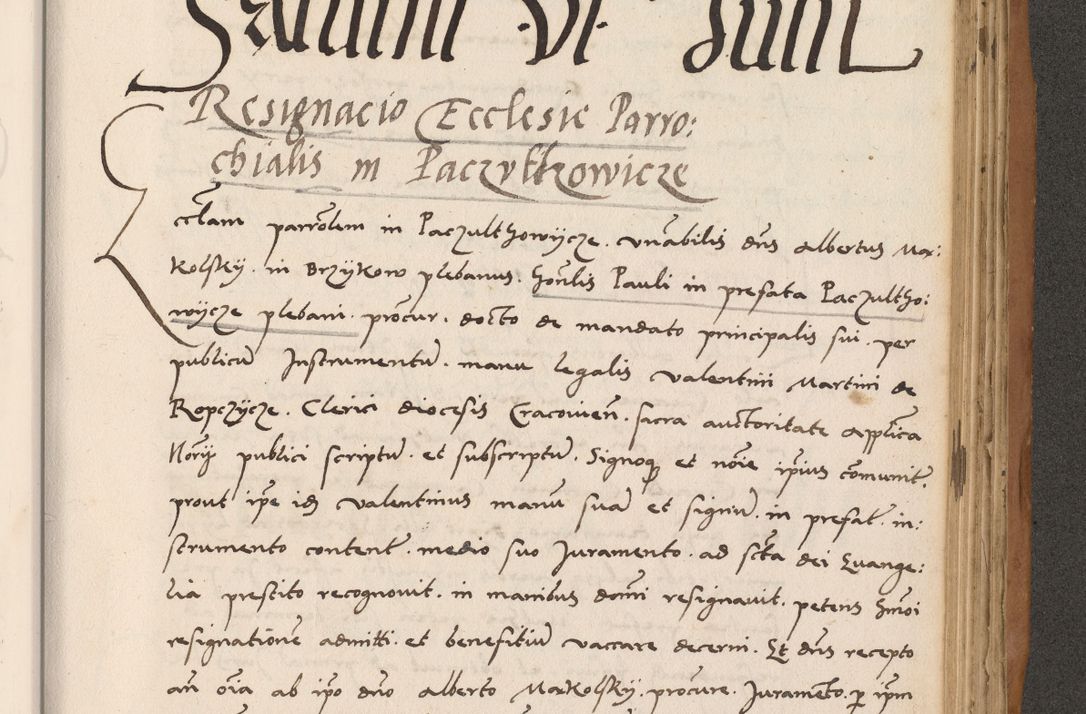 Resignacio Ecclesie Parro:
chialis in Paczultzowicze
Ecclam parrolem in Paczulthowycze. venabilis dns Albertus Mar:
kolsky. in Brzykow plebanus. honlis Pauli in prefata Paczultho:
wycze plebani. procur. docto de mandato principalis sui. per
publicu Instrumentu. manu legalis Valentini Martini de
Ropczycze. Clerici diocesis Cracovien. sacra auctoritate applica
Norij publici scriptu. et subscriptu. Signoq et noie ipius comunit.
prout ipe id Valentinus manu sua et signu. in prefat. in:
strumento content. medio suo Juramento. ad scta dei Evange:
lia prestito recognovit. in manibus domi resignavit. petens hmoi
resignatione admitti. et benefitiu vaccare decerni. Et dns recepto
an oia ab ipo dno Alberto Markolsky. procure. Juramento. p ipm